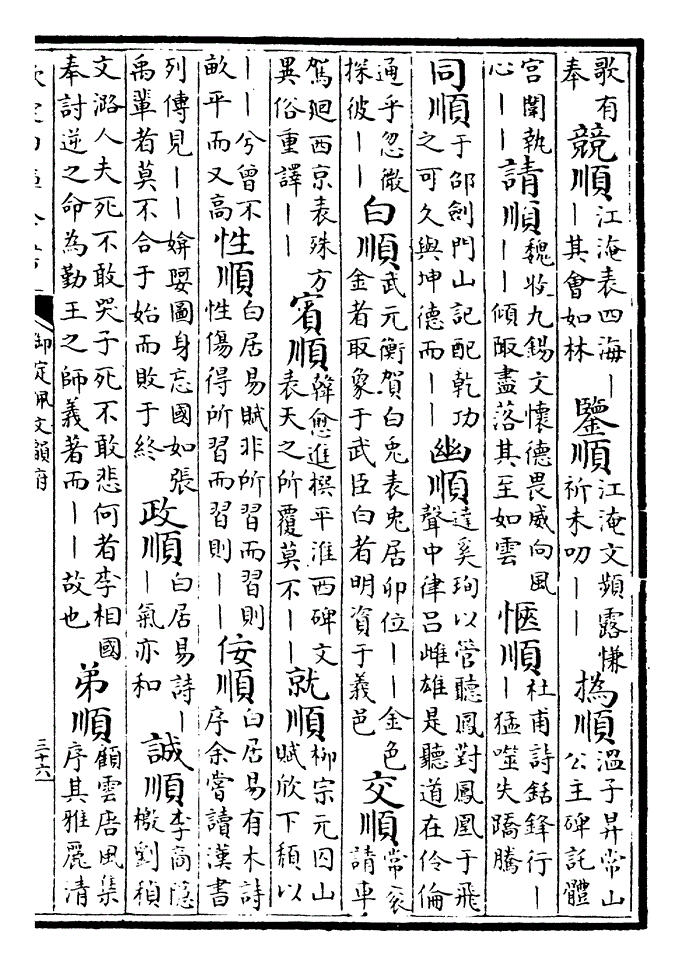 歌有奉 競順 江淹表四海丨丨其會如林 鑒順 江淹文蘋露慊祈未叨丨丨 撝順 溫子昇常山公主碑託體
宮闈執心丨丨 請順 魏收九錫文懷德畏威向風丨丨傾陬盡落其至如雲 愜順 杜甫詩銛鋒行丨丨猛噬失蹻騰
同順 于邵劍門山記配乾功之可久與坤德而丨丨 幽順 達奚珣以管聽鳳對鳳凰于飛聲中律呂雌雄是聽道在伶倫
通乎忽微探彼丨丨 白順 武元衡賀白兎表兎居卯位丨丨金色金者取象于武臣白者明資于義邑 交順 常袞請車
駕迴西京表殊方異俗重譯丨丨 賓順 韓愈進撰平淮西碑文表天之所覆莫不丨丨 就順 柳宗元囚山賦欣下頹以
丨丨兮曾不畝平而又高 性順 白居易賦非所習而習則性傷得所習而習則丨丨 侫順 白居易有木詩序余嘗讀漢書
列傳見丨丨媕娿圖身忘國如張禹輩者莫不合于始而敗于終 政順 白居易詩丨丨氣亦和 誠順 李商隱檄劉稹
文潞人夫死不敢哭子死不敢悲何者李相國奉討逆之命為勤王之師義著而丨丨故也 弟順 顧雲唐風集序其雅麗清
御定佩文韻府
三十六